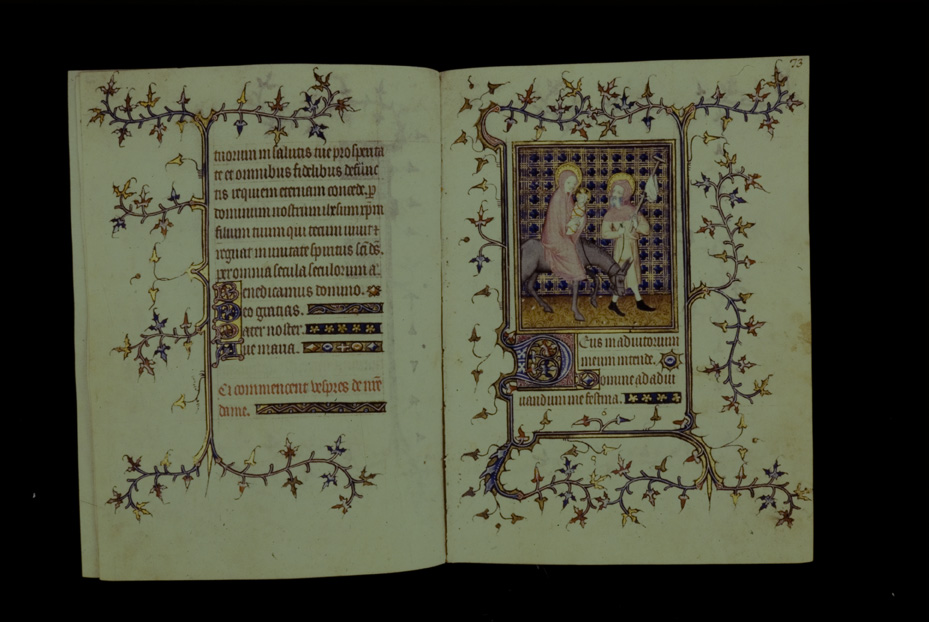 tuorum in salutis tue prosperita
te et omnibus fidelibus defunc
tis requiem eternam concede. p
dominum nostrum ihesum xpm
filium tuum qui tecum uiuit et
regnat in unitate spiritus sci ds.
per omnia secula seculorum a.
Benedicamus domino.
Deo gratias.
Pater noster.
Aue maria.
Ci commencent vespres de nre
dame.
73
Deus in adiutorium
meum intende.
Domine ad adiu
uandum me festina.